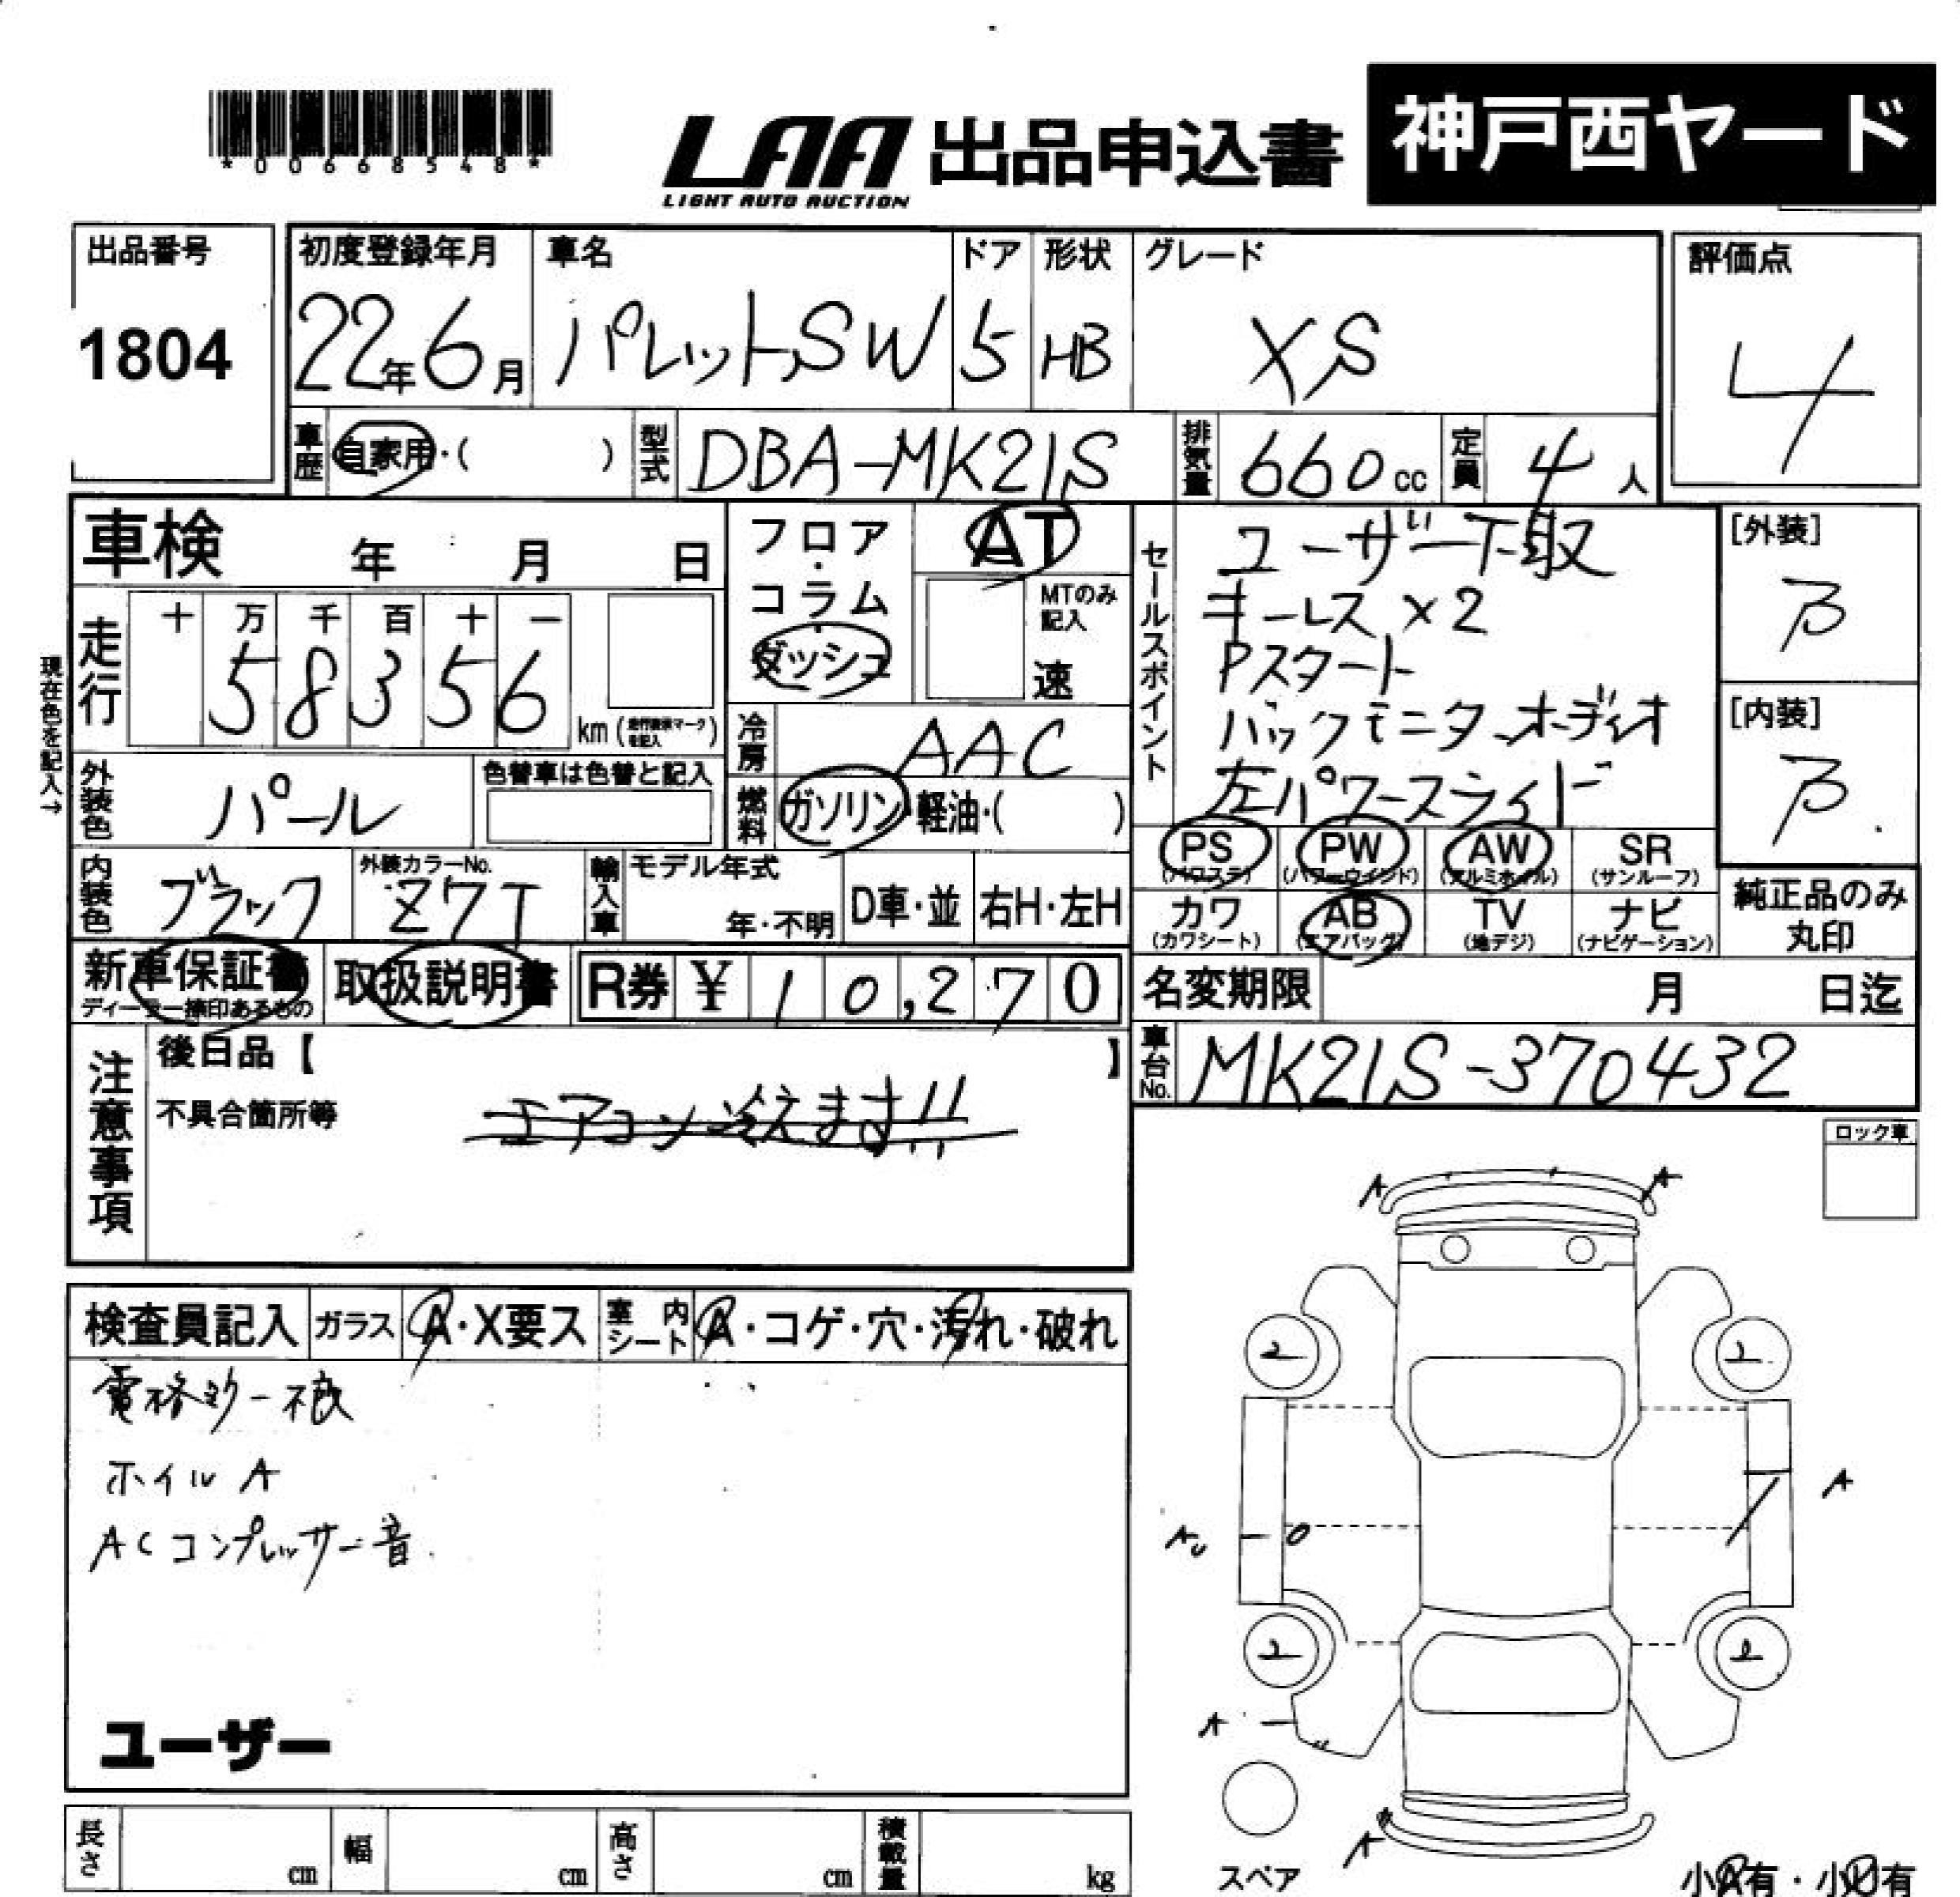 *00668548*
LAA 出品申込書 神戸西ヤード
LIGHT AUTO AUCTION
出品番号 1804
初度登録年月 22年6月
車名 パレットSW
ドア 5
形状 HB
グレード XS
評価点 4
車歴 自家用・( )
型式 DBA-MK21S
排気量 660cc
定員 4人
車検 年 月 日
フロア・コラム・ダッシュ
AT
MTのみ記入
速
セールスポイント
ユーザー下取
キーレス×2
Pスタート
バックモニターオーディオ
左パワースライド
[外装] B
[内装] B
現在色を記入→
走行 十 万 千 百 十 一
58356 km
冷房 AAC
外装色 パール
色替車は色替と記入
燃料 ガソリン・軽油・( )
内装色 ブラック
外装カラーNo. Z7T
輸入車 モデル年式 年・不明
D車・並 右H・左H
PS (パワステ) PW (パワーウインド) AW (アルミホイル) SR (サンルーフ)
カワ (カワシート) AB (エアバッグ) TV (地デジ) ナビ (ナビゲーション)
純正品のみ
丸印
新車保証書
ディーラー捺印あるもの
取扱説明書
R券 ¥ 10,270
名変期限 月 日迄
車台No. MK21S-370432
注意事項
後日品【 】
不具合箇所等
エアコン冷えます!!
ロック車
検査員記入 ガラス A・X要ス 室内シート A・コゲ・穴・汚れ・破れ
電格ミラー不良
ホイルA
ACコンプレッサー音
ユーザー
A A
2 2
A
AU
2 2
A
A
スペア
小A有・小U有
長さ cm 幅 cm 高さ cm 積載量 kg